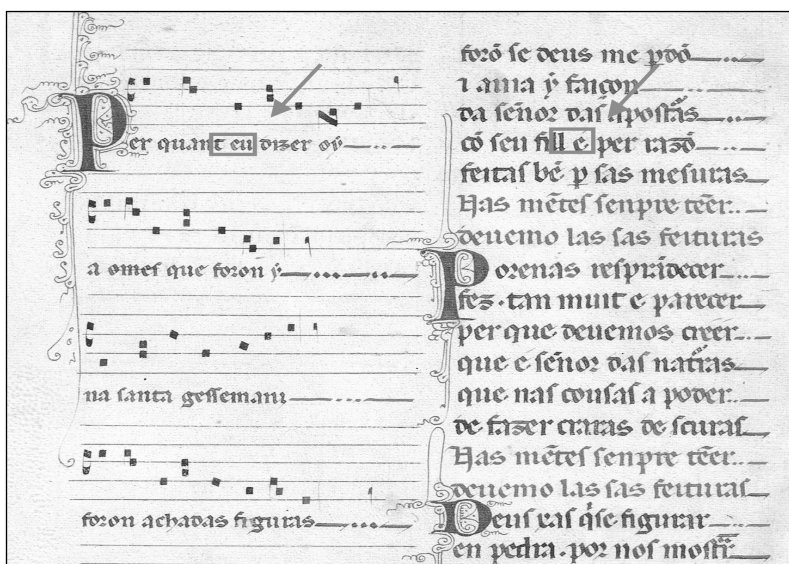 Per quant eu dizer oý
a omeſ que foron ý
na santa gessemani
foron achadas figuras
forõ se deus me pdõ
da señor das
cõ seu fill e per razõ
feitas bẽ p sas mesuras
Nas mẽtes senpre tẽer
deuemo las sas feituras
Porenas resprãdecer
fez. tan muit e parecer
per que deuemos creer
que e señor das natᵃras
que nas cousas a poder
de fazer craras de scuras
Nas mẽtes senpre tẽer
deuemo las sas feituras
Deus xas qⁱse figurar
en pedra. por nos mostᵃr